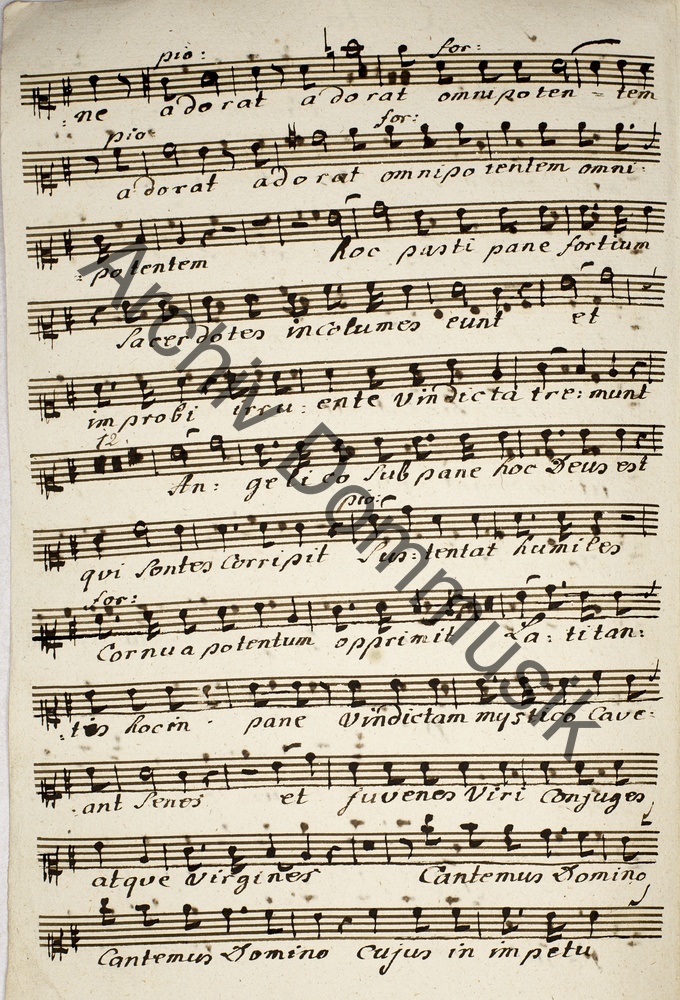 pio: for:
ne adorat adorat omnipoten = tem
pio for:
adorat adorat omnipotentem omni:
= potentem hoc pasti pane fortium
Sacerdotes incolumes eunt et
improbi irru: ente Vindicta tre: munt
12.
An: gelico Sub pane hoc Deus est
pio:
qui Sontes Corripit Sus: tentat humiles
for:
Cornua potentum opprimit La: titan:
: tis hocin pane Vindictam mystico Cave:
: ant Senes et Juvenes Viri Conjuges
atque Virgines Cantemus Domino
Cantemus Domino Cujus in impetu
Archiv Dommusik